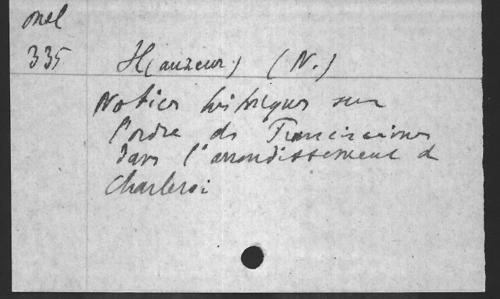 mel
335
H(auzeur) (N.)
Notices historiques sur
l'ordre des Franciscaines
dans l'arrondissement de
Charleroi